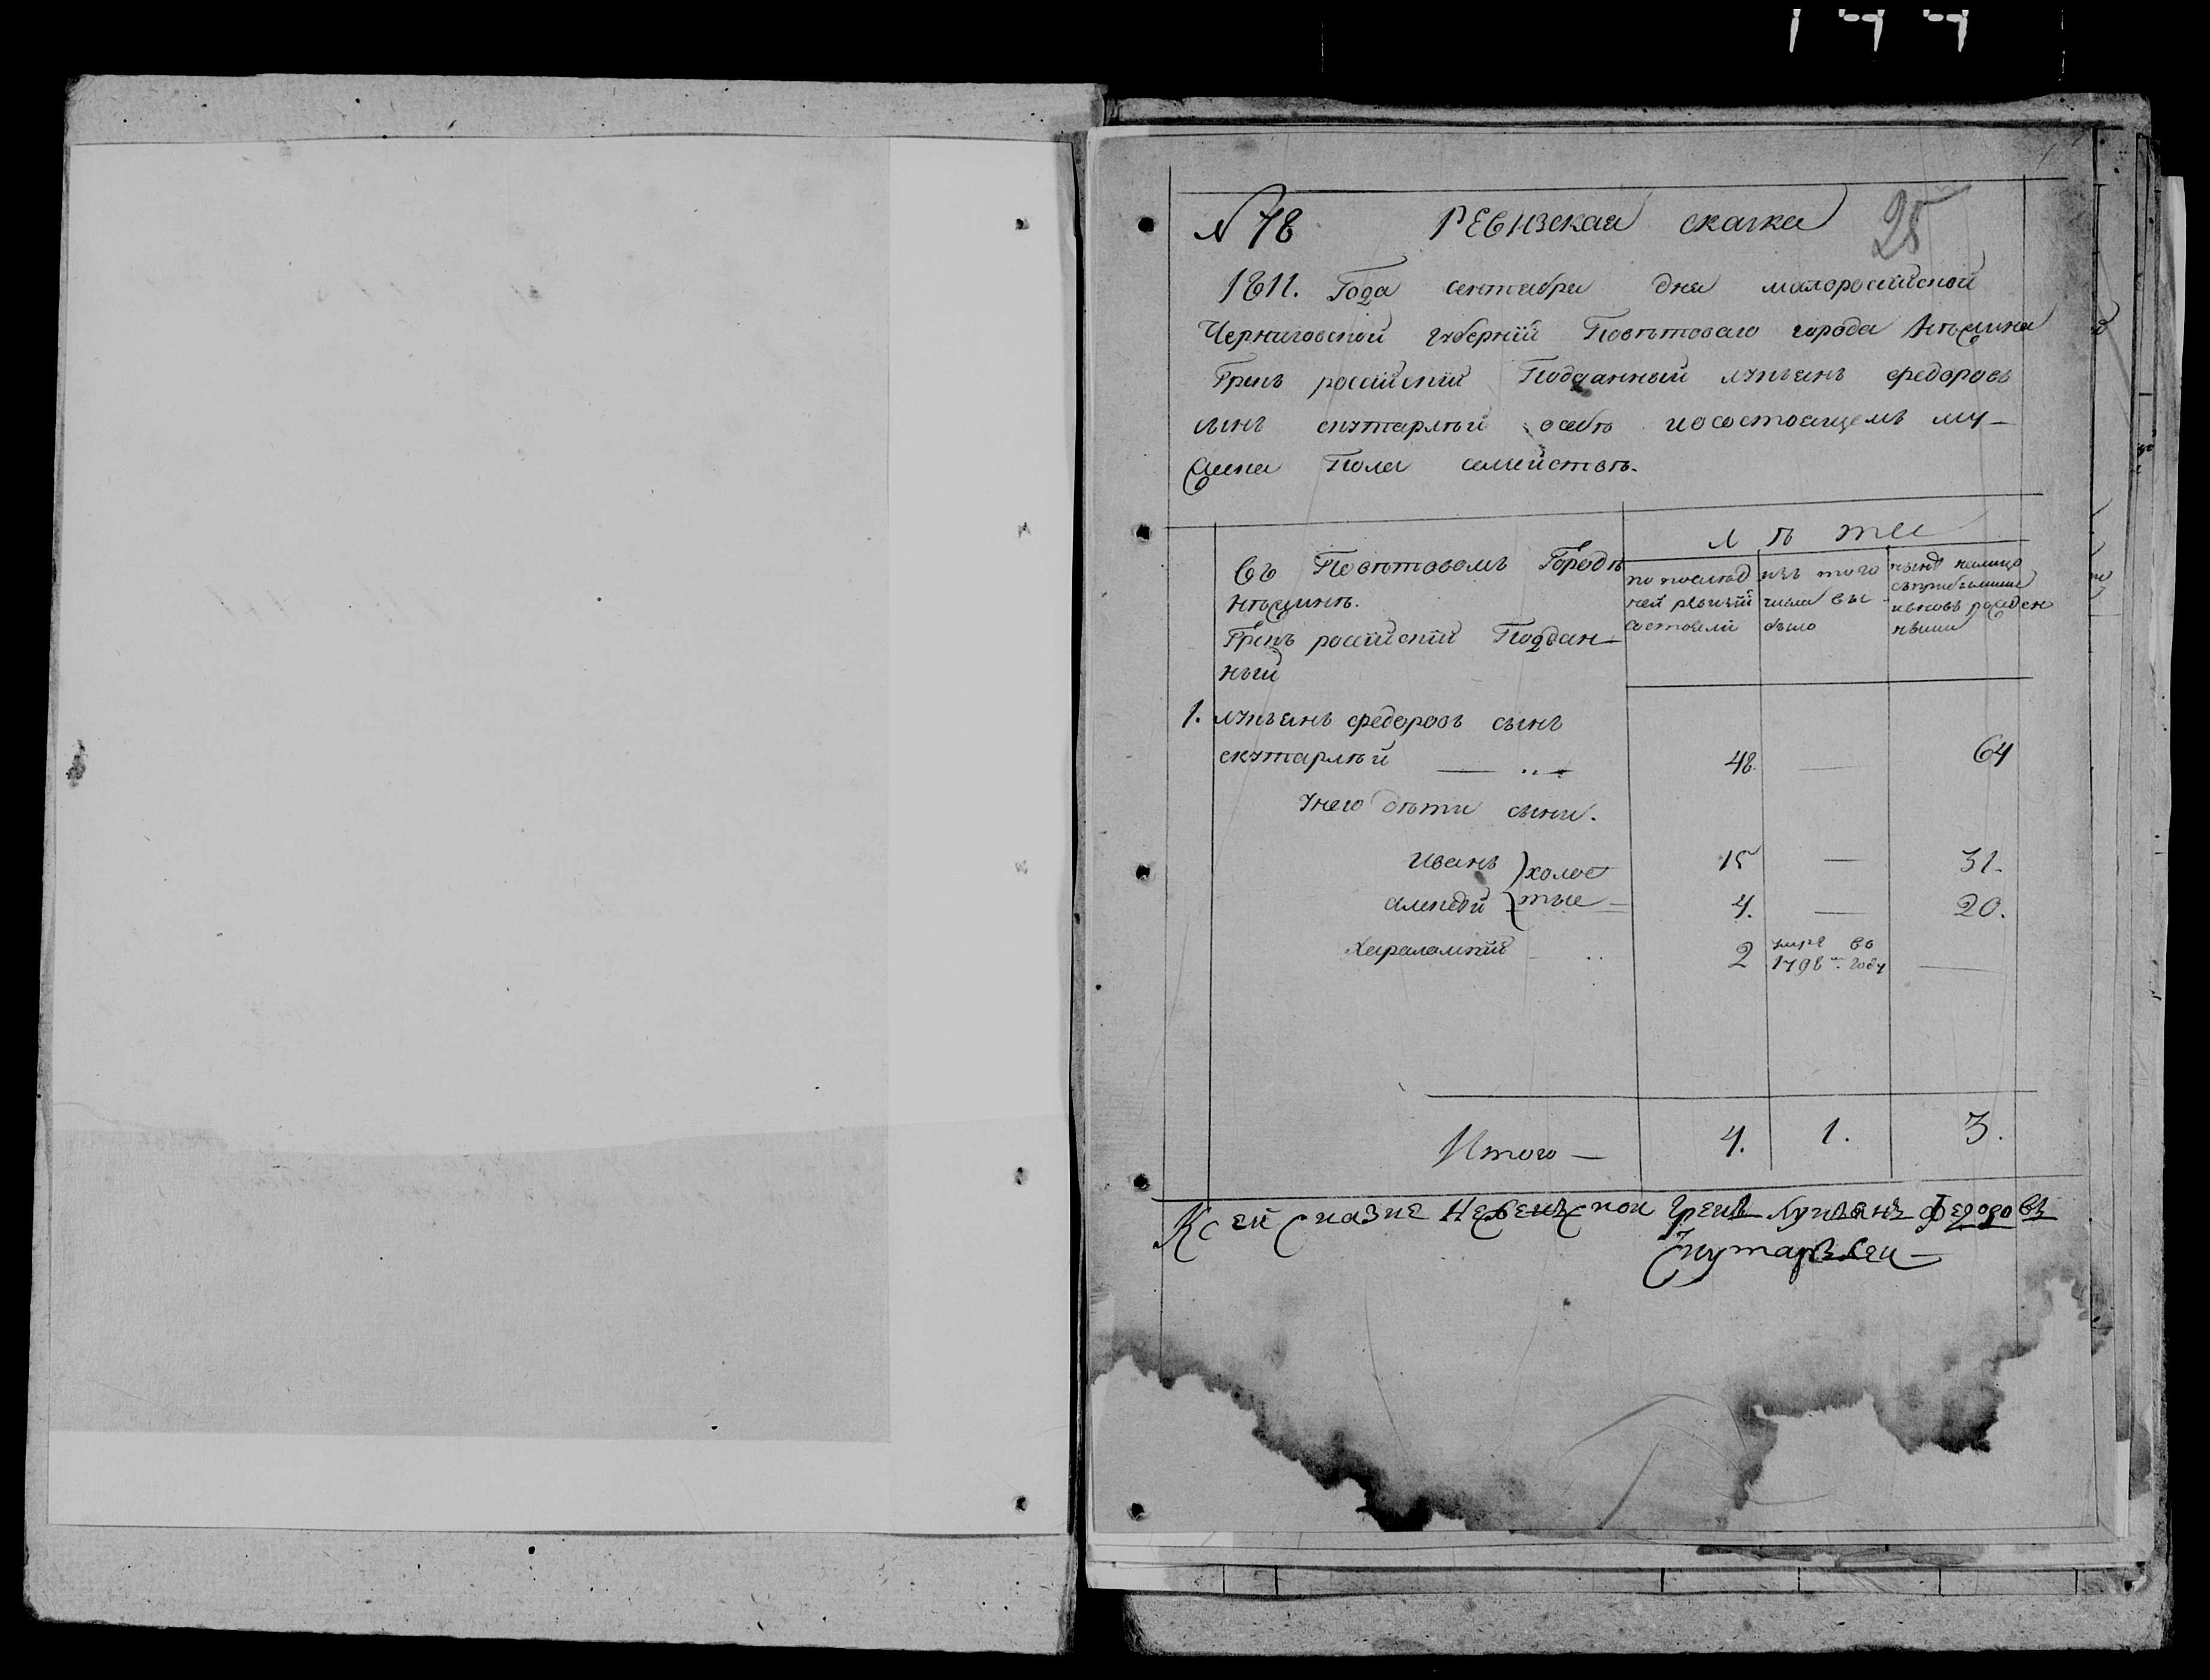 144
№ 78 Ревизская скаска 25
1811. Года сентября дня малоросийской
Черниговской губернии Повѣтоваго города Нѣжина
Грекъ росийский Подданный лукьянъ федоровъ
сынъ скутарлѣй о себѣ и о состоящемъ му-
жеска Пола семействѣ.
лѣта
Въ Повѣтовомъ Городѣ
Нѣжинѣ.
Грекъ росийский Поддан-
ный
по послѣд
ней ревизии
состояли
изъ того
числа вы
было
нынѣ налицо
съ прибылыми
и вновь рожден
ными
1. лукьянъ федоровъ сынъ
скутарлѣй — 48. — 64
У него дѣти сыни.
Иванъ холос 15 — 31.
алексѣй тые — 4. — 20.
Харалампий 2 умре въ 1798м. году —
Итого — 4. 1. 3.
К сей скаске Нежинской грекъ Лукьянъ Федоровъ
Скутарлей